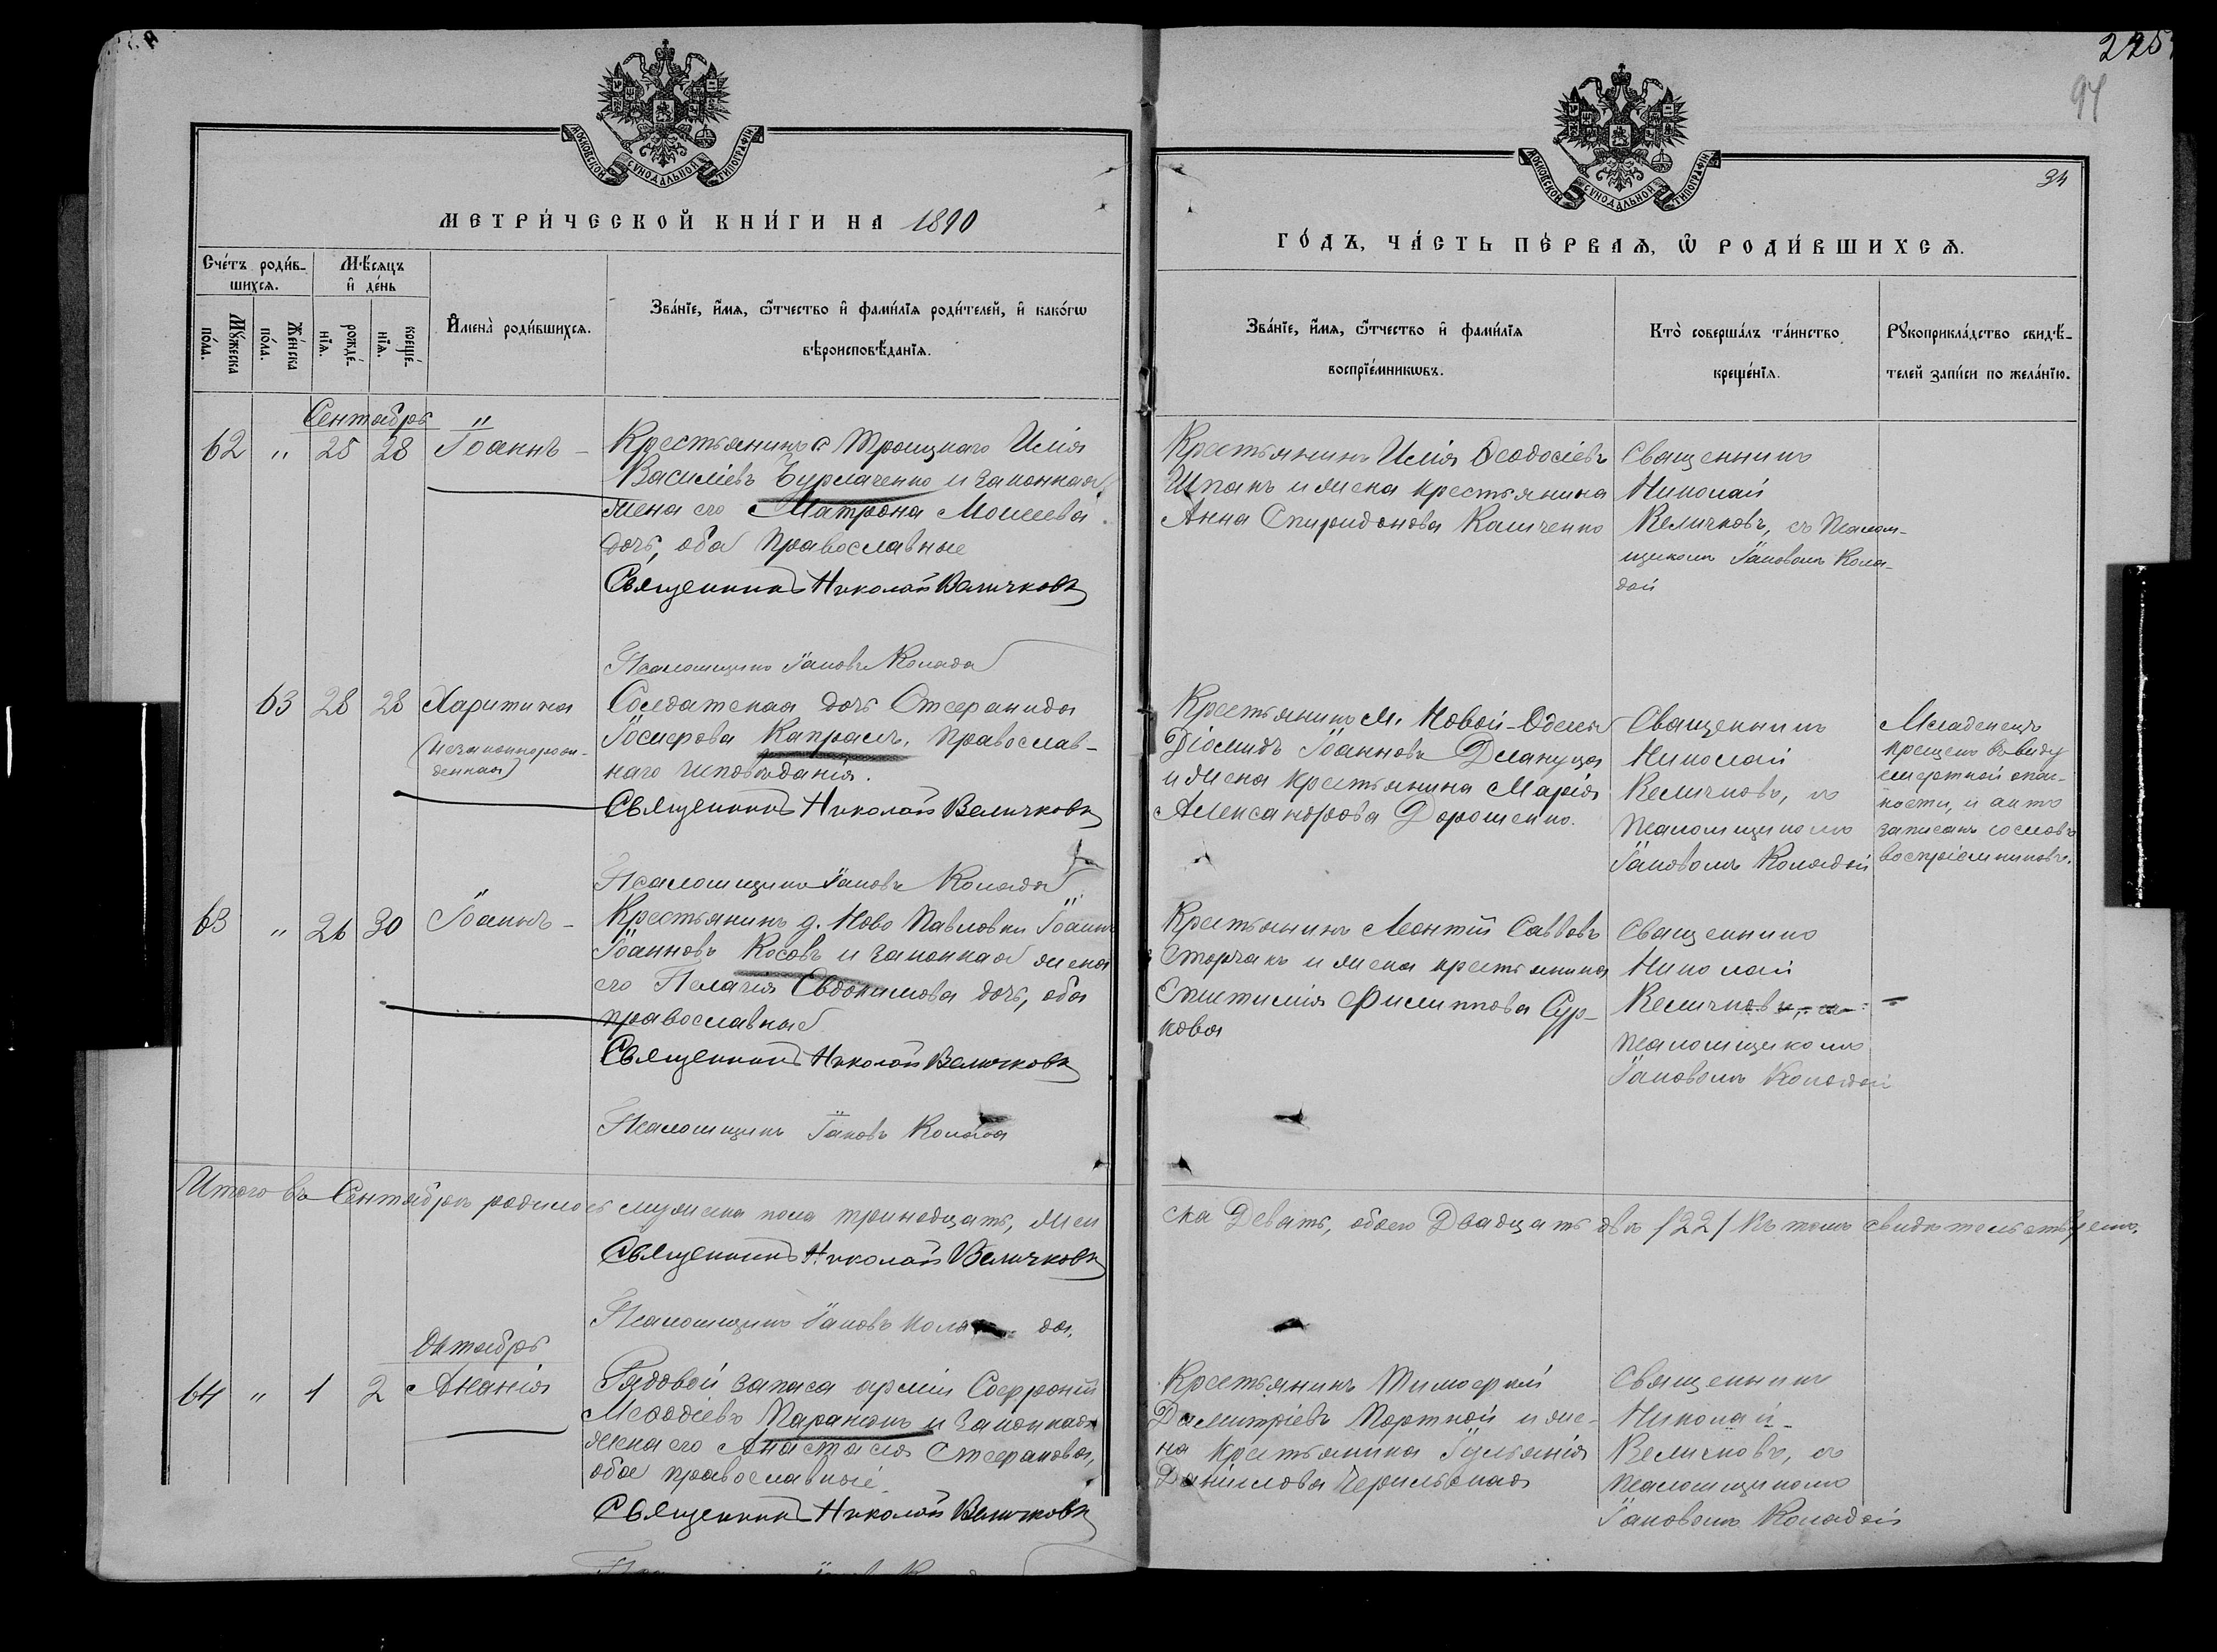 225
94
34
МОСКОВСКОЙ СѴНОДАЛЬНОЙ ТИПОГРАФІИ.
МОСКОВСКОЙ СѴНОДАЛЬНОЙ ТИПОГРАФІИ.
МЕТРИ́ЧЕСКОЙ КНИ́ГИ НА 1890
ГО́ДЪ, ЧА́СТЬ ПЕ́РВАѦ, Ѿ РОДИ́ВШИХСѦ.
Сче́тъ роди́в-
шихсѧ.
Мѣ́сѧцъ
и҆ де́нь
Мꙋ́жеска
по́ла.
Же́нска
по́ла.
рожде́-
нїѧ.
креще́-
нїѧ.
И҆мена̀ роди́вшихсѧ.
Зва́нїе, и҆́мѧ, ѻ҆́тчество и҆ фами́лїѧ роди́телей, и҆ како́гѡ
вѣроисповѣ́данїѧ.
Зва́нїе, и҆́мѧ, ѻ҆́тчество и҆ фами́лїѧ
воспрїе́мникѡвъ.
Кто̀ соверша́лъ та́инство
креще́нїѧ.
Рꙋкоприкла́дство свидѣ́-
телей за́писи по жела́нїю.
Сентябрь
62 " 25 28 Іоаннъ -
Крестьянинъ с Троицкаго Илія
Василіевъ Бурлаченко и законная
жена его Матрона Моисеева
дочь, оба православные
Священникъ Николай Величковъ
Псаломщикъ Іаковъ Коляда
Крестьянинъ Илія Ѳеодосіевъ
Шпакъ и жена крестьянина
Анна Спиридонова Каличенко
Священникъ
Николай
Величковъ, съ псалом-
щикомъ Іаковомъ Коля-
дой
63 28 28 Харитина
(незаконнорож-
денная)
Солдатская дочь Стефанида
Іосифова Капралъ, православ-
наго исповѣданія.
Священникъ Николай Величковъ
Псаломщикъ Іаковъ Коляда
Крестьянинъ М. Новой-Одессы
Діомидъ Іоанновъ
и жена крестьянина Марія
Александрова Дорошенко.
Священникъ
Николай
Величковъ, съ
псаломщикомъ
Іаковомъ Колядой
Младенецъ
крещенъ въ виду
смертной опас-
ности, и актъ
записанъ со словъ
воспріемниковъ.
63 " 26 30 Іоаннъ -
Крестьянинъ д. Ново Павловки Іоаннъ
Іоанновъ Косовъ и законная жена
его Пелагія Евдокимова дочь, оба
православные
Священникъ Николай Величковъ
Псаломщикъ Іаковъ Коляда
Крестьянинъ Леонтій Саввовъ
Сторчакъ и жена крестьянина
Филиппова Сур-
кова
Священникъ
Николай
Величковъ, съ -
псаломщикомъ
Іаковомъ Колядой
Итого въ Сентябрѣ родилось мужеска пола тринадцать, жен
ска девять, обоего двадцать двѣ /22/ Въ томъ свидѣтельствуемъ.
Священникъ Николай Величковъ
Псаломщикъ Іаковъ Коля да.
Октябрь
64 " 1 2 Ананія
Рядовой запаса арміи Софроній
Меѳодіевъ и законная
жена его Анастасія Стефанова,
оба православные.
Священникъ Николай Величковъ
Крестьянинъ Тимофей
Димитріевъ Портной и же-
на крестьянина Іуліанія
Даніилова
Священникъ
Николай
Величковъ, съ
псаломщикомъ
Іаковомъ Колядой